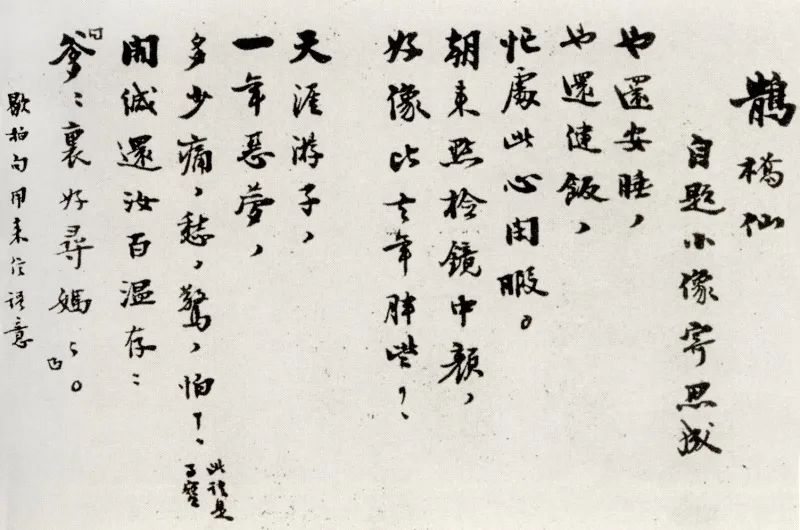 鵲橋仙
自題小像寄思成
也還安睡，
也還健飯，
忙處此心閒暇。
朝來點檢鏡中顏，
好像比去年胖些？
天涯游子，
一年惡夢，
多少痛，愁，驚，怕！
開緘還汝百溫存：
「爹爹裏好尋媽媽」。
歇拍句用來信語意